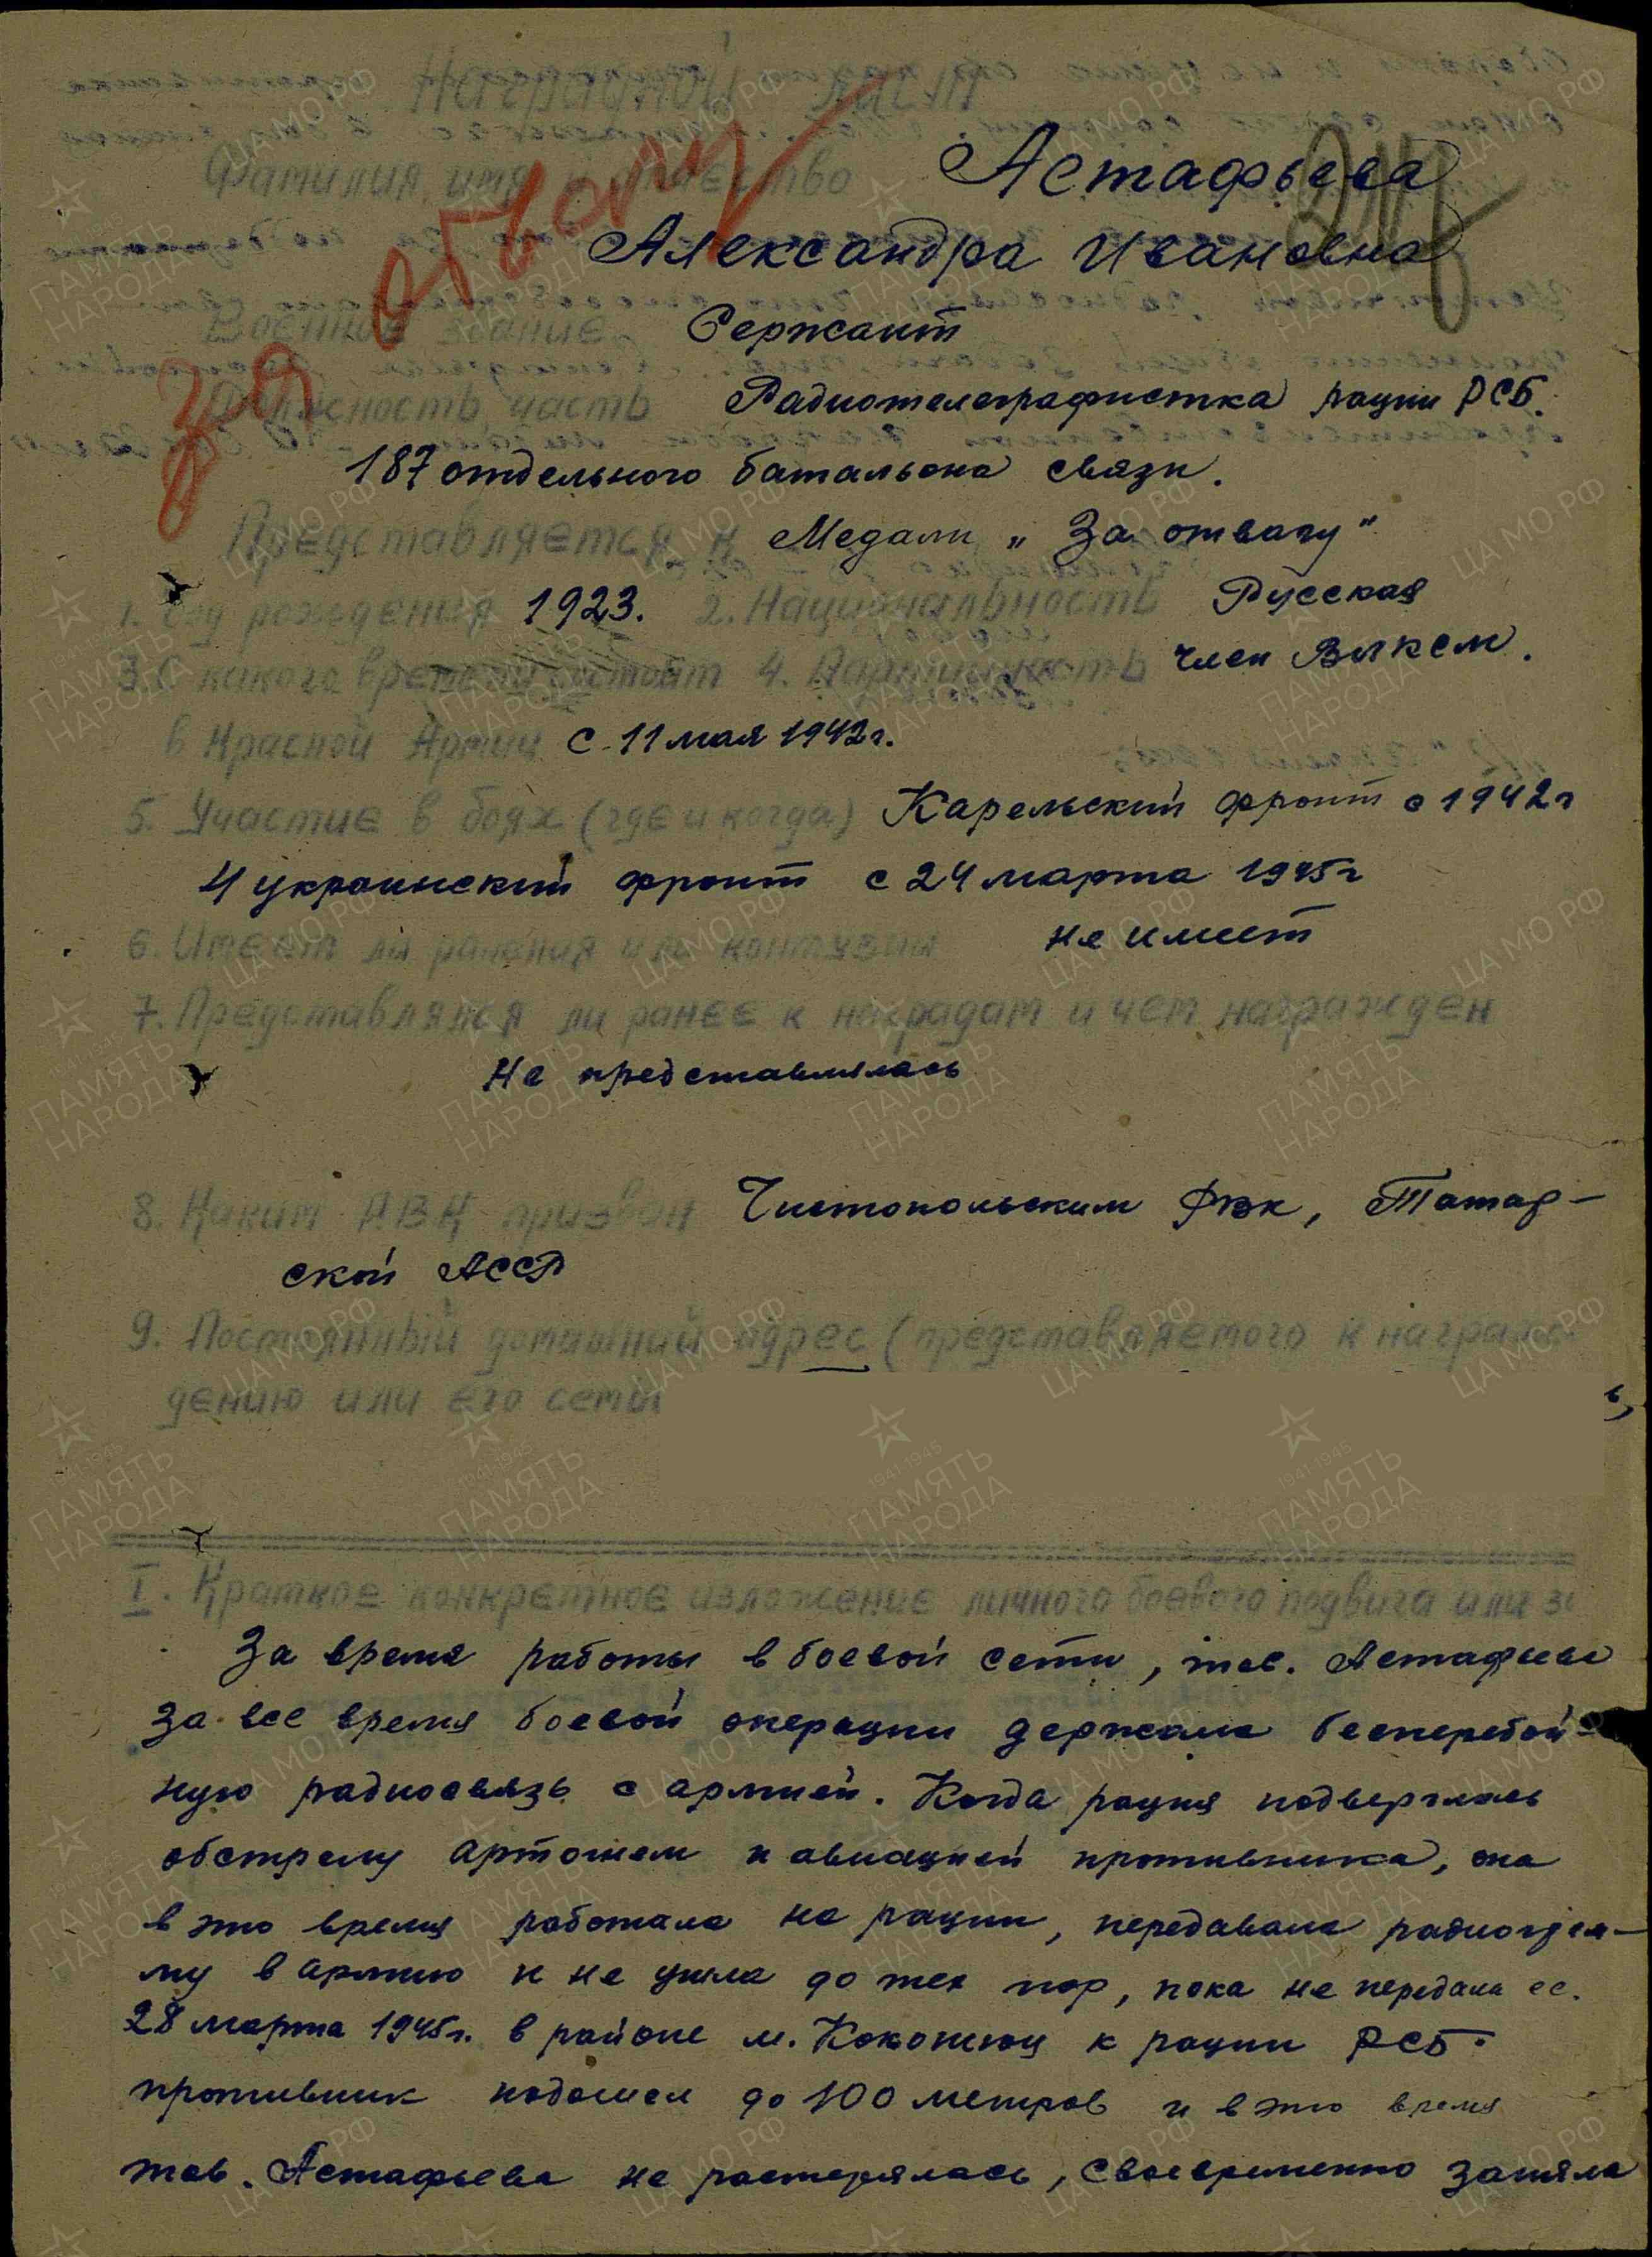 Наградной лист
Фамилия, имя и отчество Астафьева
Александра Ивановна
За отвагу
Военное звание Сержант
Должность, часть Радиотелеграфистка рации РСБ.
187 отдельного батальона связи.
Представляется к Медали „За отвагу"
1. Год рождения 1923. 2. Национальность Русская
3. С какого времени состоит 4. Партийность член ВЛКСМ.
в Красной Армии С 11 мая 1942 г.
5. Участие в боях (где и когда) Карельский фронт с 1942 г
4 украинский фронт с 24 марта 1945 г
6. Имеет ли ранения или контузии не имеет
7. Представлялся ли ранее к наградам и чем награжден
Не представлялась
8. Каким РВК призван Чистопольским РВК, Татар-
ской АССР
9. Постоянный домашний адрес (представляемого к награж-
дению или его семьи
I. Краткое конкретное изложение личного боевого подвига или
За время работы в боевой сети, тов. Астафьева
за все время боевой операции держала бесперебой-
ную радиосвязь с армией. Когда рация подверглась
обстрелу артогнем и авиацией противника, она
в это время работала на рации, передавала радиограм-
му в армию и не ушла до тех пор, пока не передала ее.
28 марта 1945 г. в районе м. к рации РСБ.
противник подошел до 100 метров и в это время
тов. Астафьева не растерялась, своевременно заняла
ЦА МО РФ
1941-1945
ПАМЯТЬ
НАРОДА